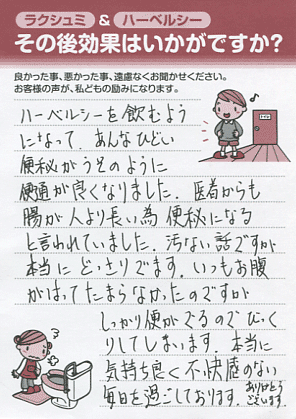 ラクシュミ & ハーベルシー
その後効果はいかがですか?
良かった事、悪かった事、遠慮なくお聞かせください。
お客様の声が、私どもの励みになります。
ハーベルシーを飲むよう
になって、あんなひどい
便秘がうそのように
便通が良くなりました。医者からも
腸が人より長い為 便秘になる
と言われていました。汚ない話ですが
本当に どっさりでます。いつもお腹
がはってたまらなかったのですが
しっかり便がでるのでびっく
りしてしまいます。本当に
気持ち良く不快感のない
毎日を過ごしております。ありがとう
ございます。